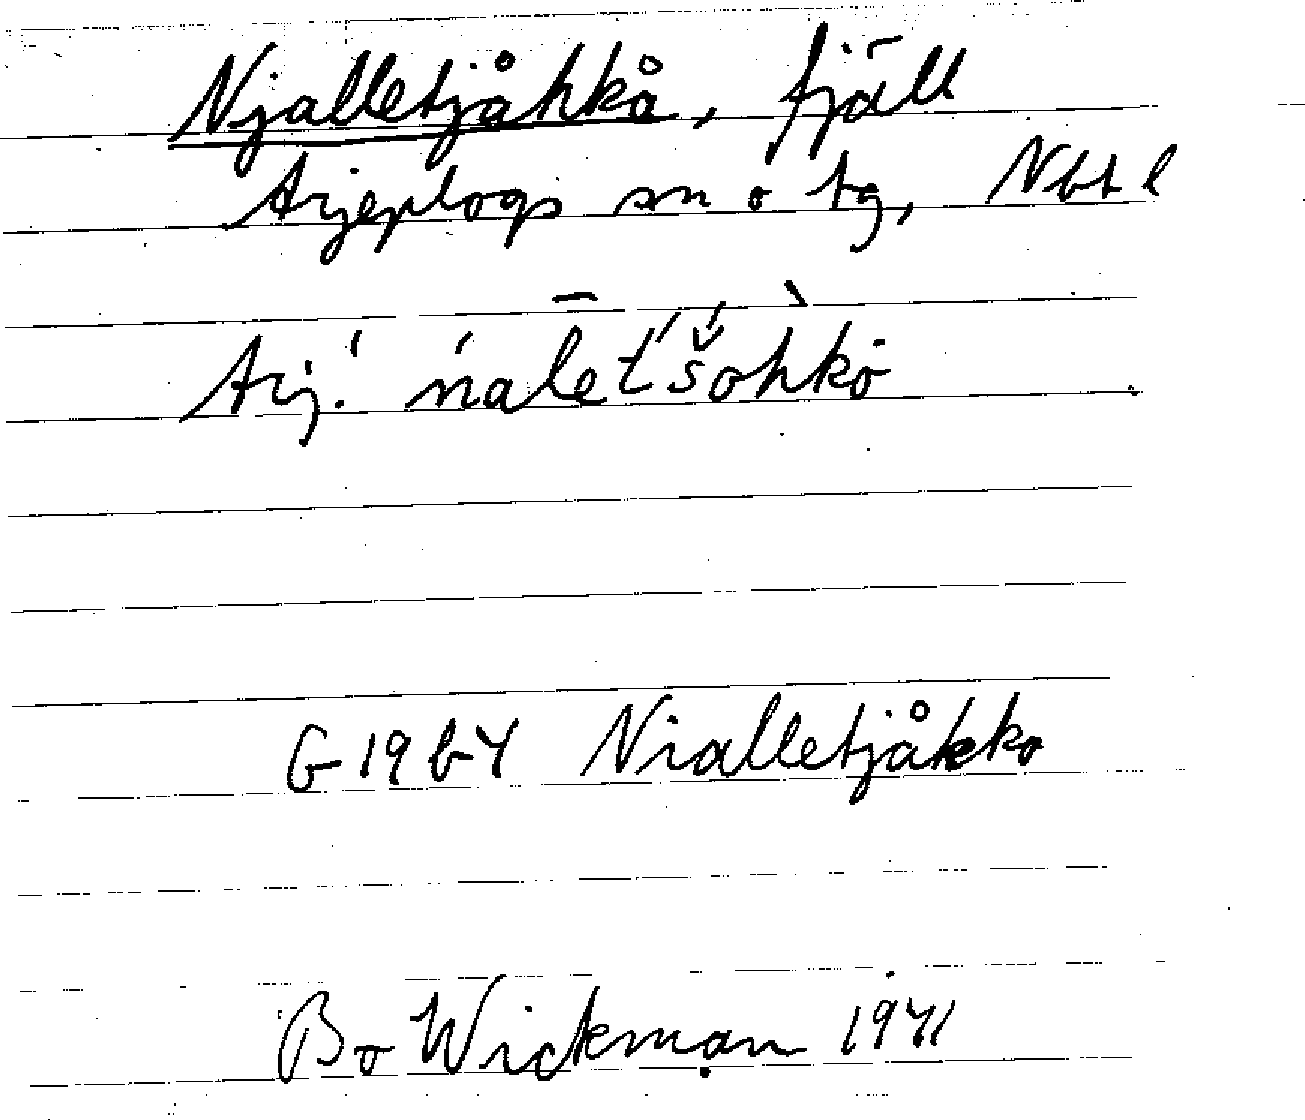 Njalletjåhkå, fjäll
Arjeplogs sn o tg, Nbt l
Arj.
G 1964 Nialletjåkko
Bo Wickman 1941